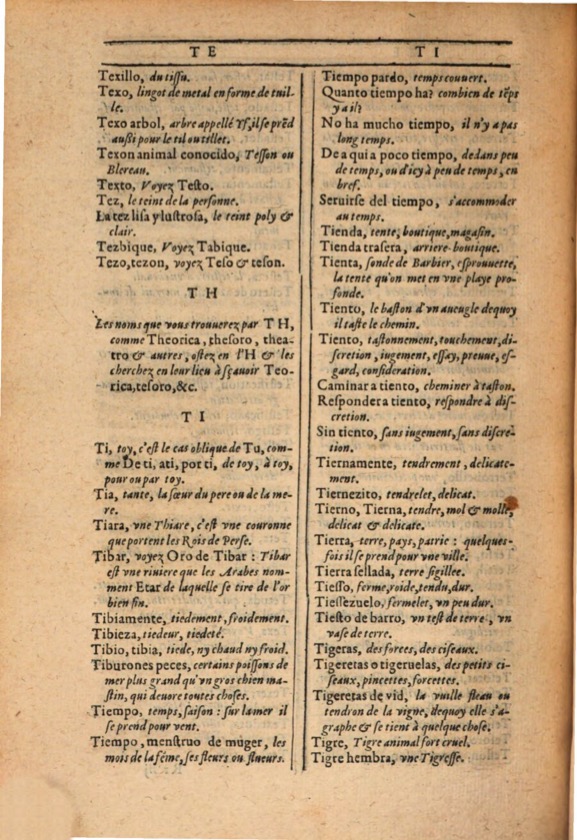 TE
TI
Texillo, du tissu.
Texo, lingot de metal en forme de tuil-
le.
Texo arbol, arbre appellé Yf, il se prēd
außi pour le til ou tillet.
Texon animal conocido, Tesson ou
Blereau.
Texto, Voyez Testo.
Tez, le teint de la personne.
La tez lisa y lustrosa, le teint poly &
clair.
Tezbique, Voyez Tabique.
Tezo, tezon, voyez Teso & teson.
TH
Les noms que vous trouuerez par TH,
comme Theorica, thesoro, thea-
tro & autres, ostez en l'H & les
cherchez en leur lieu à sçauoir Teo-
rica, tesoro, &c.
TI
Ti, toy, c'est le cas oblique de Tu, com-
me De ti, ati, por ti, de toy, à toy,
pour ou par toy.
Tia, tante, la sœur du pere ou de la me-
re.
Tiara, vne Thiare, c'est vne couronne
que portent les Rois de Perse.
Tibar, voyez Oro de Tibar : Tibar
est vne riuiere que les Arabes nom-
ment Etar de laquelle se tire de l'or
bien fin.
Tibiamente, tiedement, froidement.
Tibieza, tiedeur, tiedeté.
Tibio, tibia, tiede, ny chaud ny froid.
Tiburones peces, certains poissons de
mer plus grand qu'vn gros chien ma-
stin, qui deuore toutes choses.
Tiempo, temps, saison : sur la mer il
se prend pour vent.
Tiempo, menstruo de muger, les
mois de la féme, ses fleurs ou flueurs.
Tiempo pardo, temps couuert.
Quanto tiempo ha? combien de tēps
y a il?
No ha mucho tiempo, il n'y a pas
long temps.
De aqui a poco tiempo, dedans peu
de temps, ou d'icy à peu de temps, en
bref.
Seruirse del tiempo, s'accommoder
au temps.
Tienda, tente, boutique, magasin.
Tienda trasera, arriere-boutique.
Tienta, sonde de Barbier, esprouuette,
la tente qu'on met en vne playe pro-
fonde.
Tiento, le baston d'vn aueugle dequoy
il taste le chemin.
Tiento, tastonnement, touchement, di-
scretion, iugement, essay, preuue, es-
gard, consideration.
Caminar a tiento, cheminer à taston.
Responder a tiento, respondre à dis-
cretion.
Sin tiento, sans iugement, sans discre-
tion.
Tiernamente, tendrement, delicate-
ment.
Tiernezito, tendrelet, delicat.
Tierno, Tierna, tendre, mol & molle,
delicat & delicate.
Tierra, terre, pays, patrie : quelques-
fois il se prend pour vne ville.
Tierra sellada, terre sigillee.
Tiesso, ferme, roide, tendu, dur.
Tiessezuelo, fermelet, vn peu dur.
Tiesto de barro, vn test de terre, vn
vase de terre.
Tigeras, des forces, des ciseaux.
Tigeretas o tigeruelas, des petits ci-
seaux, pincettes, forcettes.
Tigeretas de vid, la vuille fleau ou
tendron de la vigne, dequoy elle s'a-
graphe & se tient à quelque chose.
Tigre, Tigre animal fort cruel.
Tigre hembra, vne Tigresse.